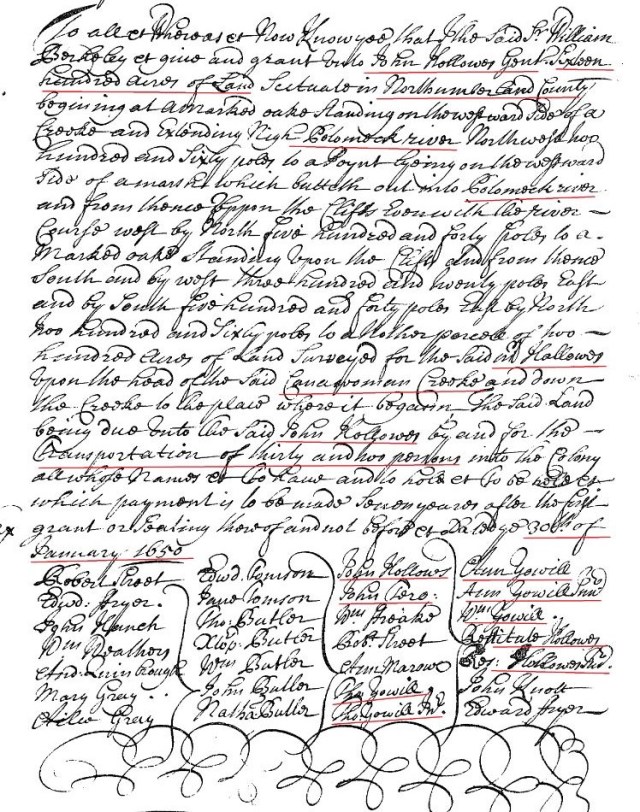 To all et Whereas et Now Know yee that I the Said Sr. William
Berkeley et give and grant unto John Hollowes Gent. Sixteen
hundred Acres of Land Scituate in Northumberland County
begining at a Marked oake standing on the westward Side of a
Creeke and Extending Nigh Potomeck river Northwest two
hundred and Sixty poles to a Poynt lying on the westward
Side of a marsh which butteth out into Potomeck river
and from thence uppon the Clifts Even with the river
Course west by North five hundred and forty poles to a
Marked oake Standing upon the Clifts and from thence
South and by west three hundred and twenty poles East
and by South five hundred and forty poles East by North
two hundred and Sixty poles to a Nother percell of two
hundred acres of Land Surveyed for the Said Mr Hallowes
upon the head of the Said Canawoman Creeke and down
the Creeke to the place where it began. The Said Land
being due unto the Said John Hollowes by and for the
Transportation of thirty and two persons into the Colony
all whose Names et To have and to hold et to be held et
which payment is to be made Seaven yeares after the first
grant or Seating thereof and not before et Dated ye 30th. of
January 1650
Robert Street
Edwd. Fryer.
John
Wm
And:
Mary Gray.
Alice Gray
Edwd. Tomson
Jane Tomson
Tho: Butler
Xtop. Butler
Wm Butler
John Butler
Natha Butler
John Hollows
John Pero:
Wm. Freake
Rob. Street
Ann Marow
Tho Yowill
Tho Yowill Jur.
Ann Yowill
Ann Yowill Junr
Wm Yowill
Restitute Hollowes
Res: Hollowes Jur.
John Knott
Edward Fryer